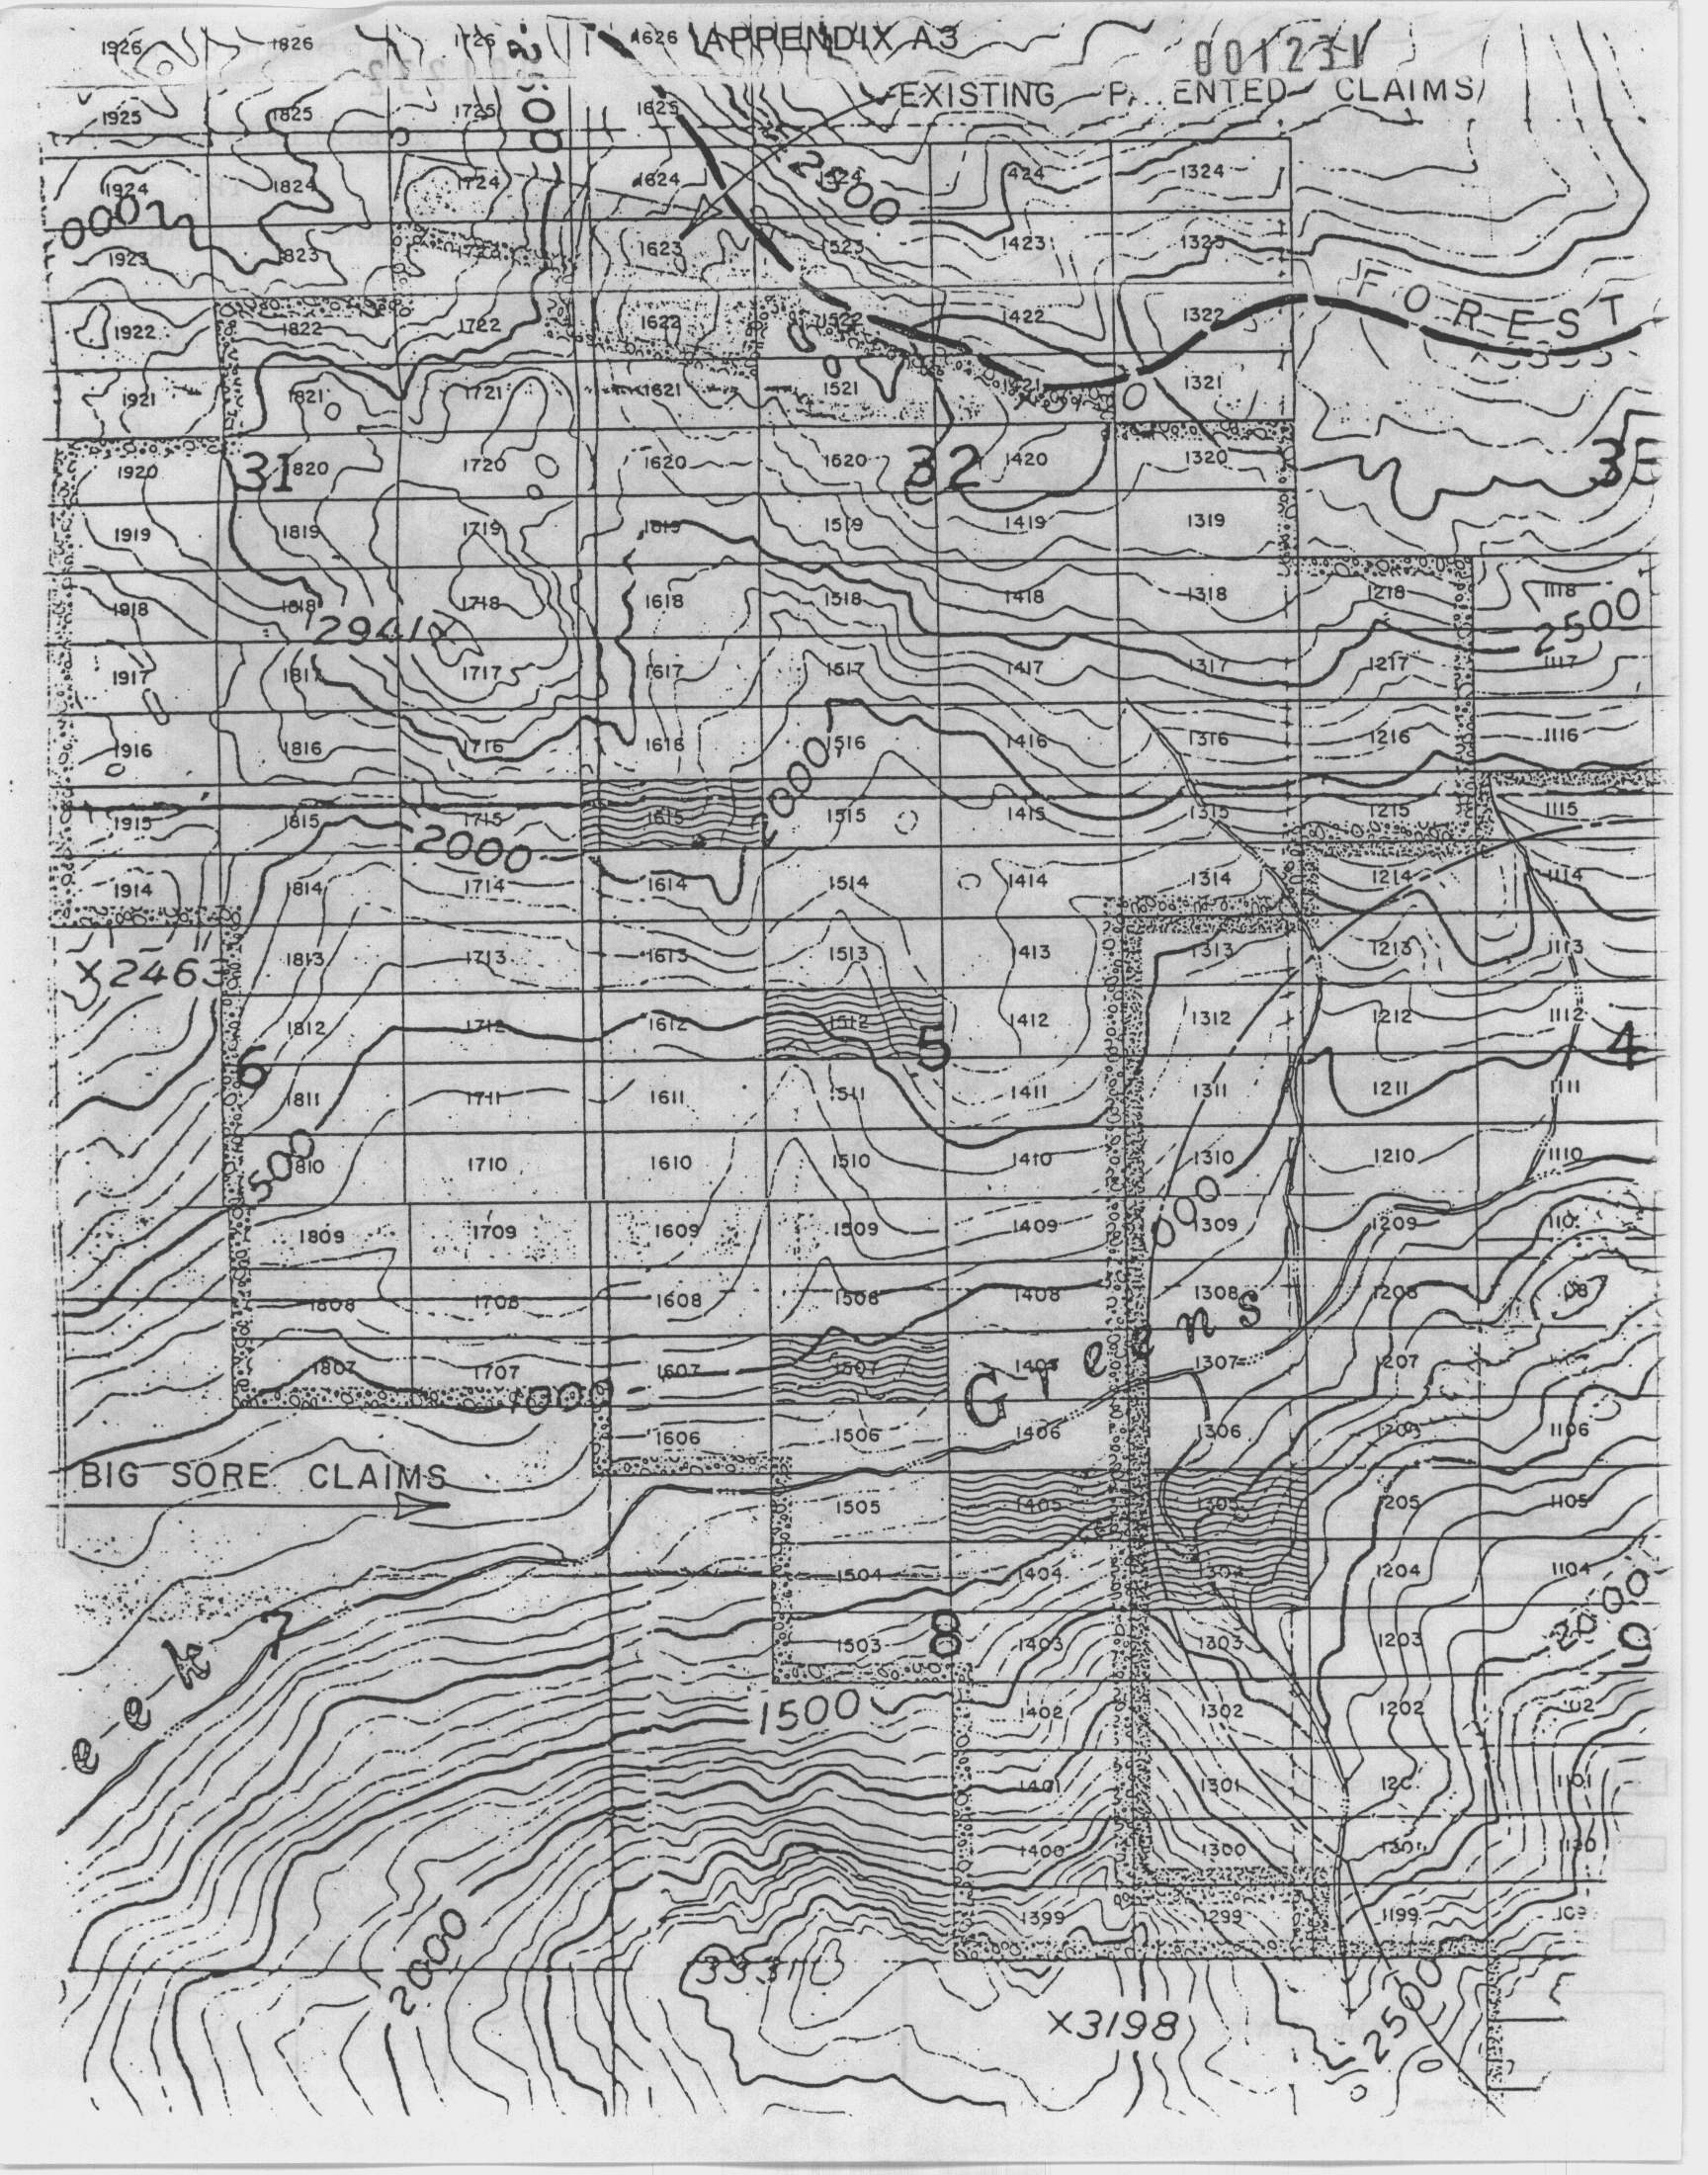 1926 1826 1726 1626 APPENDIX A3
001231
EXISTING ENTED CLAIMS
1925 1825 1725 1625
1924 1824 1724 1624 1324
2500
1923 1823 1623 1523 1423 1323
FOREST
1922 1822 1722 1622 1522 1422 1322
1921 1821 1721 1621 1521 1421 1321
1920 31 1820 1720 1620 1620 32 1420 1320
1919 1819 1719 1619 1519 1419 1319
1918 1818 1718 1618 1518 1418 1318 1218 1118
2941 2500
1917 1817 1717 1617 1517 1417 1317 1217 1117
1916 1816 1716 1616 1516 1416 1316 1216 1116
1915 1815 1715 1615 1515 1415 1315 1215 1115
2000
1914 1814 1714 1614 1514 1414 1314 1214 1114
X2463 1813 1713 1613 1513 1413 1313 1213 1113
1812 1712 1612 1512 1412 1312 1212 1112
6 5 4
1811 1711 1611 1511 1411 1311 1211 1111
500
1810 1710 1610 1510 1410 1310 1210 1110
1809 1709 1609 1509 1409 1309 1209
000
1808 1708 1608 1508 1408 1308 1208
Greens
1807 1707 1607 1507 1307 1207
1000
1606 1506 1406 1306 1106
BIG SORE CLAIMS
1505 1405 1305 1205 1105
1504 1404 1304 1204 1104
2000
eek 7
1503 8 1403 1303 1203
1500
1402 1302 1202
1401 1301 1101
1400 1300
1399 1299 1199
2000
3331
X3198
2500